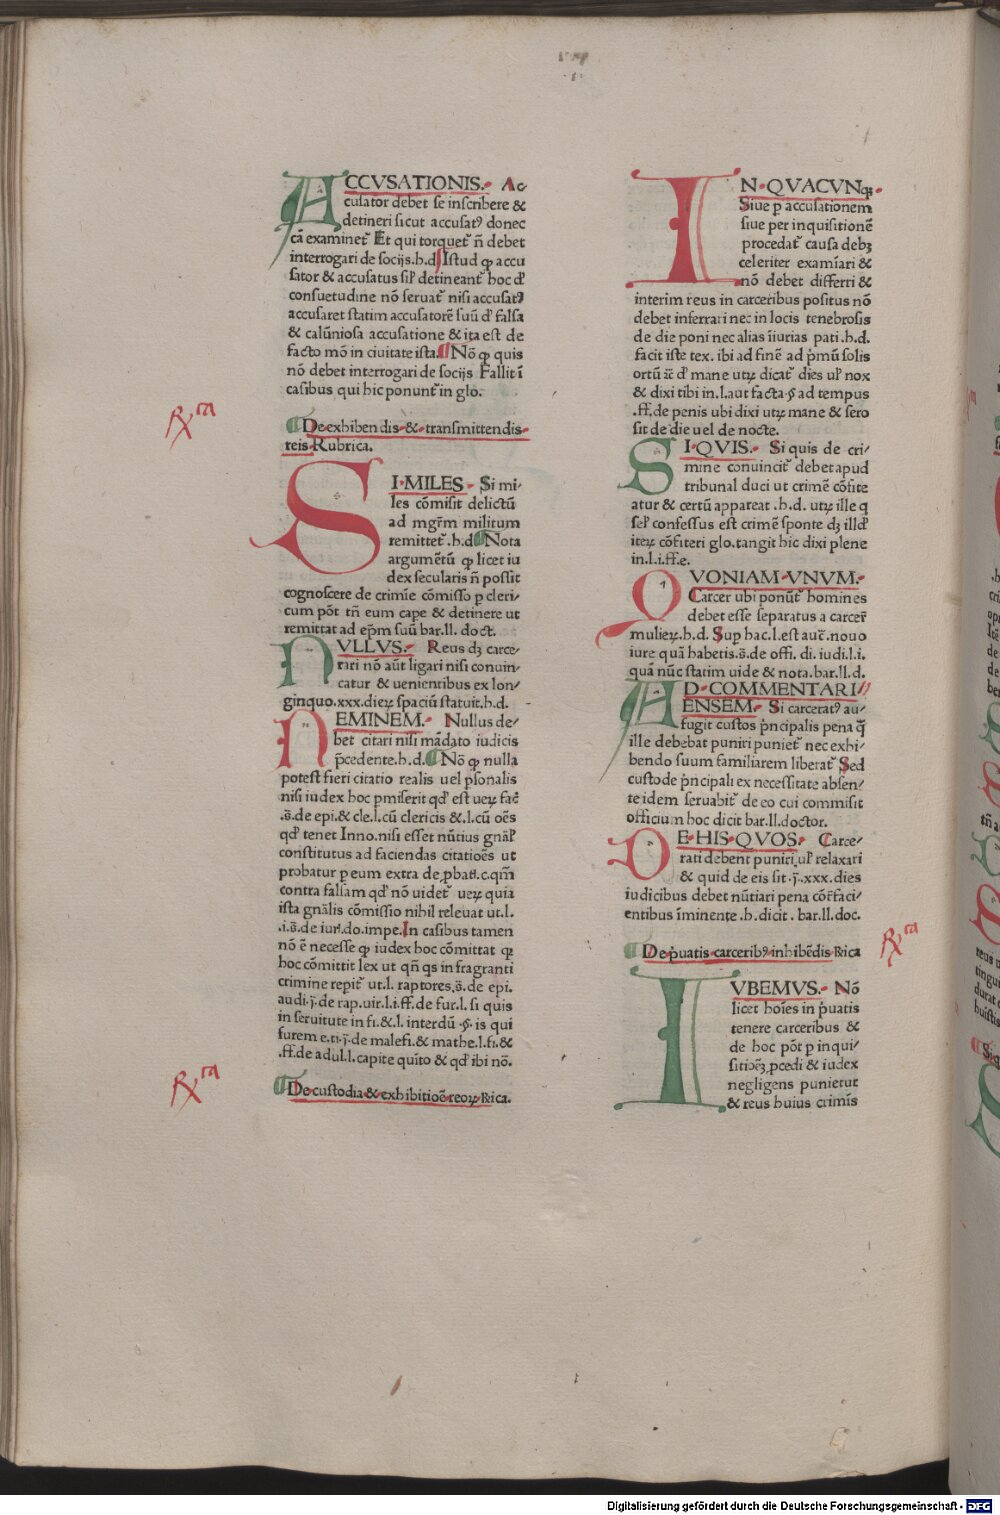 ACCVSATIONIS. Ac
cusator debet se inscribere &
detineri sicut accusatꝰ donec
cā examinet᷑ Et qui torquet᷑ n̄ debet
interrogari de socijs.h.d Istud ꝙ accu
sator & accusatus sil̕ detineant᷑ hoc d̕
consuetudine nō seruat᷑ nisi accusatꝰ
accusaret statim accusatorē suū d̕ falsa
& calūniosa accusatione & ita est de
facto mō in ciuitate ista. ¶ Nō ꝙ quis
nō debet interrogari de socijs Fallit ī
casibus qui hic ponunt᷑ in glo.
Rx̄ra
¶ De exhibendis & transmittendis
reis Rubrica.
SI MILES Si mi-
les cōmisit delictū
ad mgr̄m militum
remittet᷑.h.d ¶ Nota
argumētū ꝙ licet iu
dex secularis n̄ possit
cognoscere de crimīe cōmisso p cleri-
cum pōt tn̄ eum cape & detinere ut
remittat ad ep̄m suū bar.ll. doct.
NVLLVS. Reus dꝫ carce-
rari nō aūt ligari nisi conuin-
catur & uenientibus ex lon-
ginquo.xxx.dieꝝ spaciū statuit.h.d.
NEMINEM. Nullus de-
bet citari nisi mādato iudicis
p̄cedente.h.d. ¶ Nō ꝙ nulla
potest fieri citatio realis uel ꝑsonalis
nisi iudex hoc ꝑmiserit qd̕ est ueꝝ fac̄
.s̄.de epi.& cle.l.cū clericis &.l.cū oēs
qd̕ tenet Inno.nisi esset nūtius gnāl̕
constitutus ad faciendas citatiōes ut
probatur ꝑ eum extra de ꝓbati.c.qm̄
contra falsam qd̕ nō uidet᷑ ueꝝ quia
ista gnālis cōmissio nihil releuat ut.l.
.i.s̄.de iuri.do.impe.In casibus tamen
nō ē necesse ꝙ iudex hoc cōmittat ꝙ
hoc cōmittit lex ut qn̄ qs in fragranti
crimine repit᷑ ut.l. raptores.s̄.de epi.
audi.j̄.de rap.uir.l.i.ff.de fur.l. si quis
in seruitute in fi.&.l. interdū .§. is qui
furem e.ti.j̄.de malefi.& mathe.l.fi.&
.ff.de adul.l.capite quīto & qd̕ ibi nō.
Rx̄ra
¶ De custodia & exhibitiōe reoꝝ Rica.
IN QVACVNQꝫ
Siue p accusationem
siue per inquisitionē
procedat᷑ causa debꝫ
celeriter examīari &
nō debet differri &
interim reus in carceribus positus nō
debet inferrari nec in locis tenebrosis
de die poni nec alias iīurias pati.h.d.
facit iste tex. ibi ad finē ad pͥmū solis
ortū iē d̕ mane utꝝ dicat᷑ dies ul̕ nox
& dixi tibi in.l.aut facta.§ ad tempus
.ff.de penis ubi dixi utꝝ mane & sero
sit de die uel de nocte.
SI QVIS. Si quis de cri-
mine conuincit᷑ debet apud
tribunal duci ut crimē cōfite
atur & certū appareat.h.d. utꝝ ille q
sel̕ confessus est crimē sponte dꝫ illd̕
iteꝝ cōfiteri glo.tangit hic dixi plene
in.l.i.ff.e.
QVONIAM VNVM.
Carcer ubi ponūt᷑ homines
debet esse separatus a carcer᷑
mulieꝝ.h.d. Sup hac.l.est aut̄c.nouo
iure quā habetis.s̄.de offi. di. iudi.l.i.
quā nūc statim uide & nota.bar.ll.d.
AD COMMENTARI
ENSEM. Si carceratꝰ au-
fugit custos pͥncipalis pena q̄
ille debebat puniri puniet᷑ nec exhi-
bendo suum familiarem liberat᷑ Sed
custode pͥncipali ex necessitate absen-
te idem seruabit᷑ de eo cui commisit
officium hoc dicit bar.ll.doctor.
DE HIS QVOS. Carce-
rati debent puniri ul̕ relaxari
& quid de eis sit .j̄.xxx.dies
iudicibus debet nūtiari pena cōr̄faci-
entibus īminente .h.dicit . bar.ll.doc.
Rx̄ra
¶ De pͥuatis carceribꝰ inhibēdis Rica
IVBEMVS. Nō
licet hoīes in pͥuatis
tenere carceribus &
de hoc pōt p inqui-
sitiōeꝫ ꝓcedi & iudex
negligens punietur
& reus huius crimīs
Digitalisierung gefördert durch die Deutsche Forschungsgemeinschaft - DFG